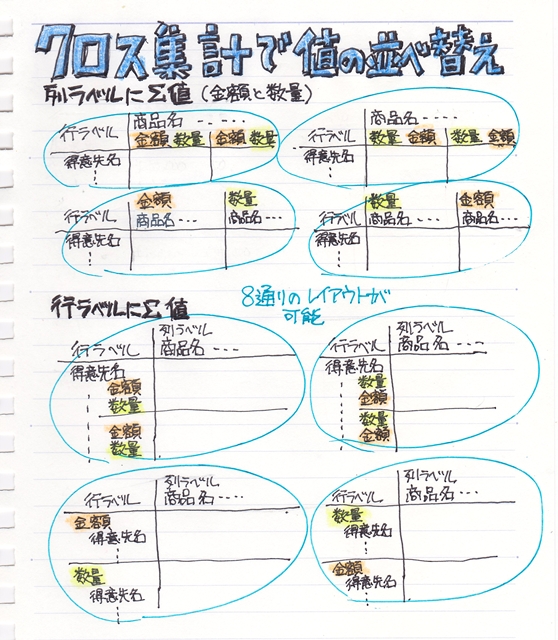 クロス集計で値の並べ替え
列ラベルにΣ値(金額と数量)
商品名 - - - -
行ラベル 金額 数量 金額 数量
得意先名
商品名 - - - -
行ラベル 数量 金額 数量 金額
得意先名
金額 数量
行ラベル 商品名 - - - 商品名 - - -
得意先名
数量 金額
行ラベル 商品名 - - - 商品名 - - -
得意先名
行ラベルにΣ値
8通りのレイアウトが
可能
列ラベル
行ラベル 商品名 - - - -
得意先名
金額
数量
金額
数量
列ラベル
行ラベル 商品名 - - - -
得意先名
数量
金額
数量
金額
列ラベル
行ラベル 商品名 - - - -
金額
得意先名
数量
得意先名
列ラベル
行ラベル 商品名 - - - -
数量
得意先名
金額
得意先名